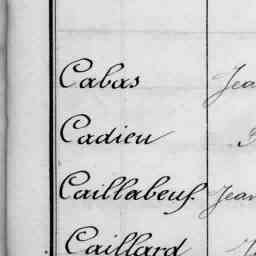 Cabas Jea
Cadieu
Caillabeuf. Jean
Caillard